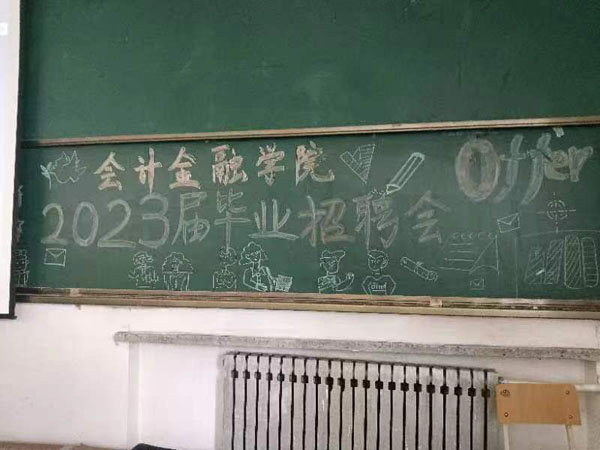 会计金融学院
Offer
2023届毕业招聘会